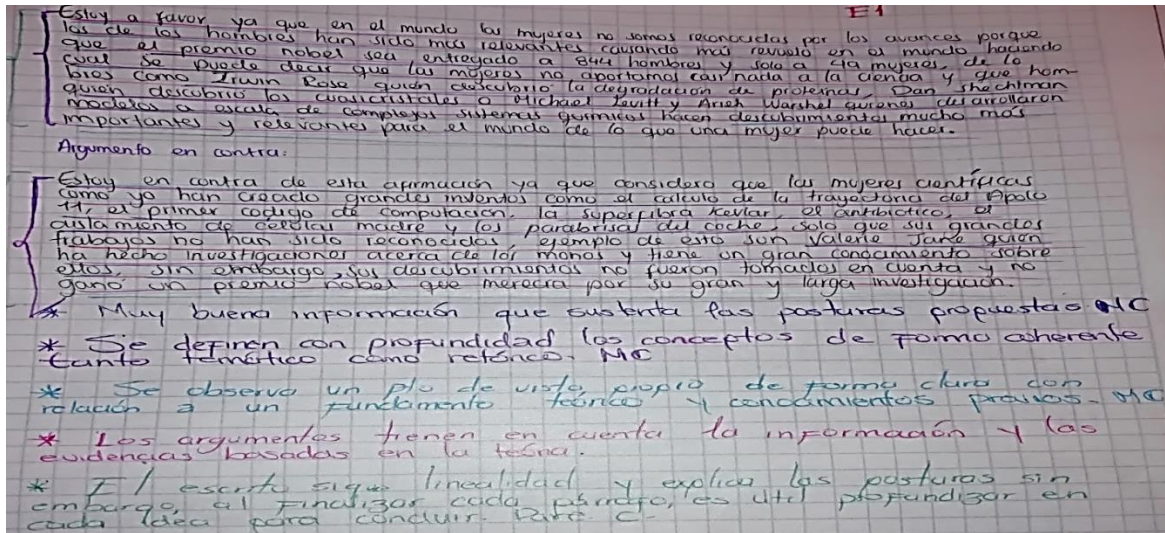 E1
Estoy a favor ya que en el mundo las mujeres no somos reconocidas por los avances porque
los de los hombres han sido mas relevantes causando mas revuelo en el mundo haciendo
que el premio nobel sea entregado a 844 hombres y solo a 49 mujeres, de lo
cual se puede decir que las mujeres no aportamos casi nada a la ciencia y que hom-
bres como Irwin Rose quién descubrio la degradación de proteinas, Dan Shechtman
quién descubrio los cuasicristales o Michael Levitt y Arieh Warshel quienes desarrollaron
modelos a escala de complejos sistemas químicos hacen descubrimientos mucho mas
importantes y relevantes para el mundo de lo que una mujer puede hacer.
Argumento en contra:
Estoy en contra de esta afirmación ya que considero que las mujeres científicas
como yo han creado grandes inventos como el calculo de la trayectoria del Apolo
11, el primer codigo de computacion, la superfibra Kevlar, el antibiótico, el
aislamiento de celulas madre y los parabrisas del coche, solo que sus grandes
trabajos no han sido reconocidos, ejemplo de esto son Valerie Jane quien
ha hecho investigaciones acerca de los monos y tiene un gran conocimiento sobre
ellos, sin embargo, sus descubrimientos no fueron tomados en cuenta y no
gano un premio nobel que merecia por su gran y larga investigación.
* Muy buena información que sustenta las posturas propuestas MC
* Se definen con profundidad los conceptos de forma coherente
tanto temático como retórico. MC
* Se observa un pto de vista propio de forma clara con
relación a un fundamento teórico y conocimientos previos. MC
* Los argumentos tienen en cuenta la información y las
evidencias basadas en la teoria.
* El escrito sigue linealidad y explica las posturas sin
embargo, al finalizar cada párrafo, es util profundizar en
cada idea para concluir. C-